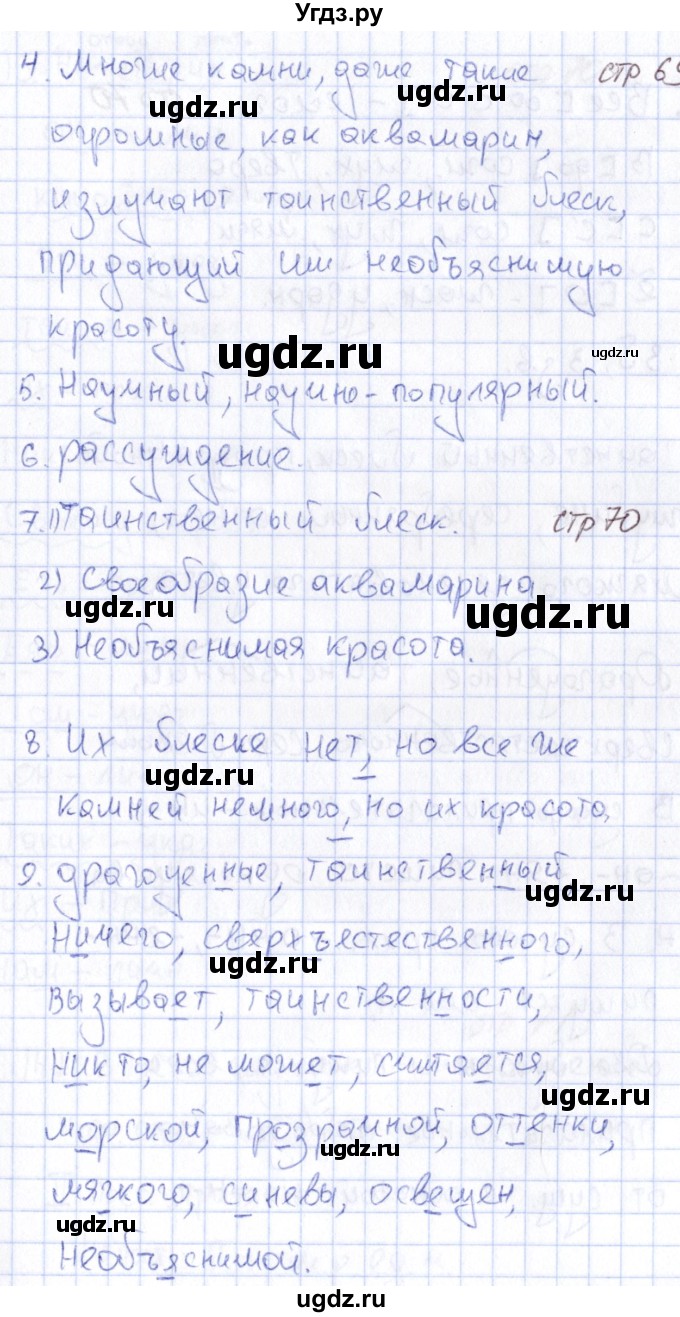 Угдз.ру
4. Многие камни, даже такие стр 69
огромные, как аквамарин,
излучают таинственный блеск,
ugdz.ru
придающий им необъяснимую
красоту. ugdz.ru ugdz.ru
5. Научный, научно-популярный.
ugdz.ru
6. рассуждение.
ugdz.ru
7. 1) Таинственный блеск. стр 70
2) Своеобразие аквамарина
ugdz.ru ugdz.ru
3) Необъяснимая красота.
8. Их блеска нет, но все же
ugdz.ru
камней немного, но их красота,
9. драгоценные, таинственный
ugdz.ru
Ничего, сверхъестественного,
ugdz.ru
Вызывает, таинственности,
Никто, не может, считается,
ugdz.ru
морской, прозрачной, оттенки,
ugdz.ru
мягкого, синевы, освещен,
ugdz.ru
Необъяснимой.
ugdz.ru